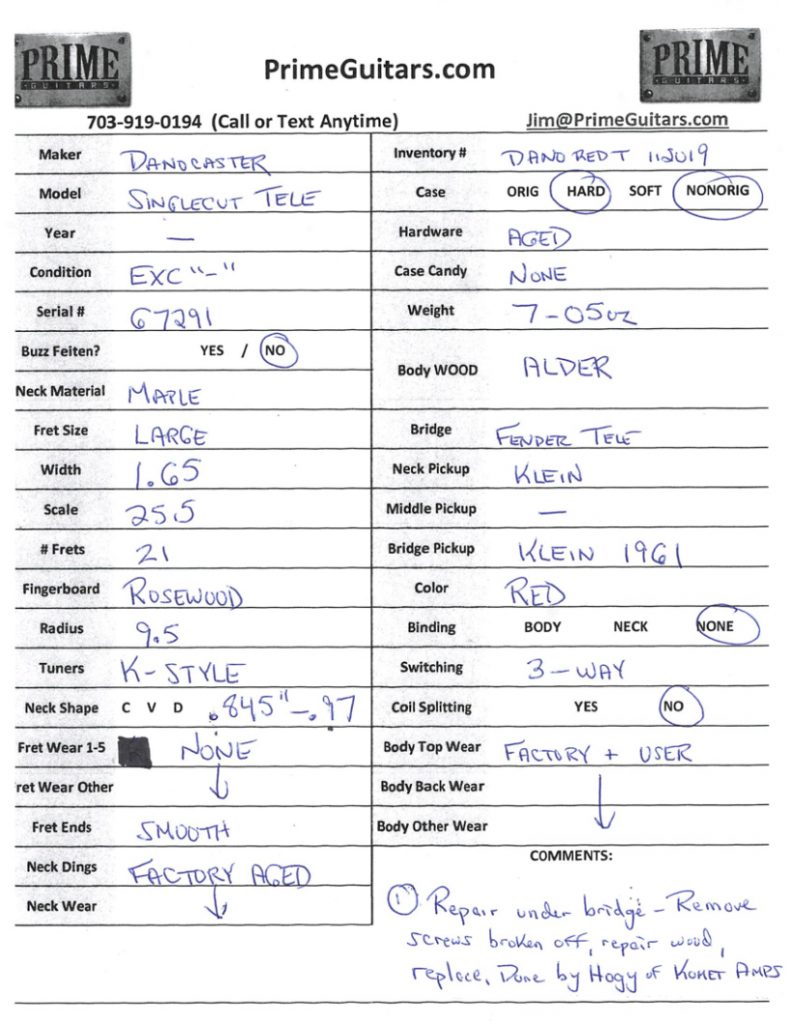 PRIME
GUITARS
PrimeGuitars.com
PRIME
GUITARS
703-919-0194 (Call or Text Anytime)
Jim@PrimeGuitars.com
Maker DANOCASTER
Model SINGLECUT TELE
Year —
Condition EXC "-"
Serial # 67291
Buzz Feiten? YES / NO
Neck Material MAPLE
Fret Size LARGE
Width 1.65
Scale 25.5
# Frets 21
Fingerboard ROSEWOOD
Radius 9.5
Tuners K-STYLE
Neck Shape C V D .845"-.97
Fret Wear 1-5 NONE
ret Wear Other ↓
Fret Ends SMOOTH
Neck Dings FACTORY AGED
Neck Wear ↓
Inventory # DANO RED T 112019
Case ORIG HARD SOFT NONORIG
Hardware AGED
Case Candy NONE
Weight 7-05oz
Body WOOD ALDER
Bridge FENDER TELE
Neck Pickup KLEIN
Middle Pickup —
Bridge Pickup KLEIN 1961
Color RED
Binding BODY NECK NONE
Switching 3-WAY
Coil Splitting YES NO
Body Top Wear FACTORY + USER
Body Back Wear ↓
Body Other Wear
COMMENTS:
① Repair under bridge - Remove
screws broken off, repair wood,
replace. Done by Hogy of KOMET AMPS